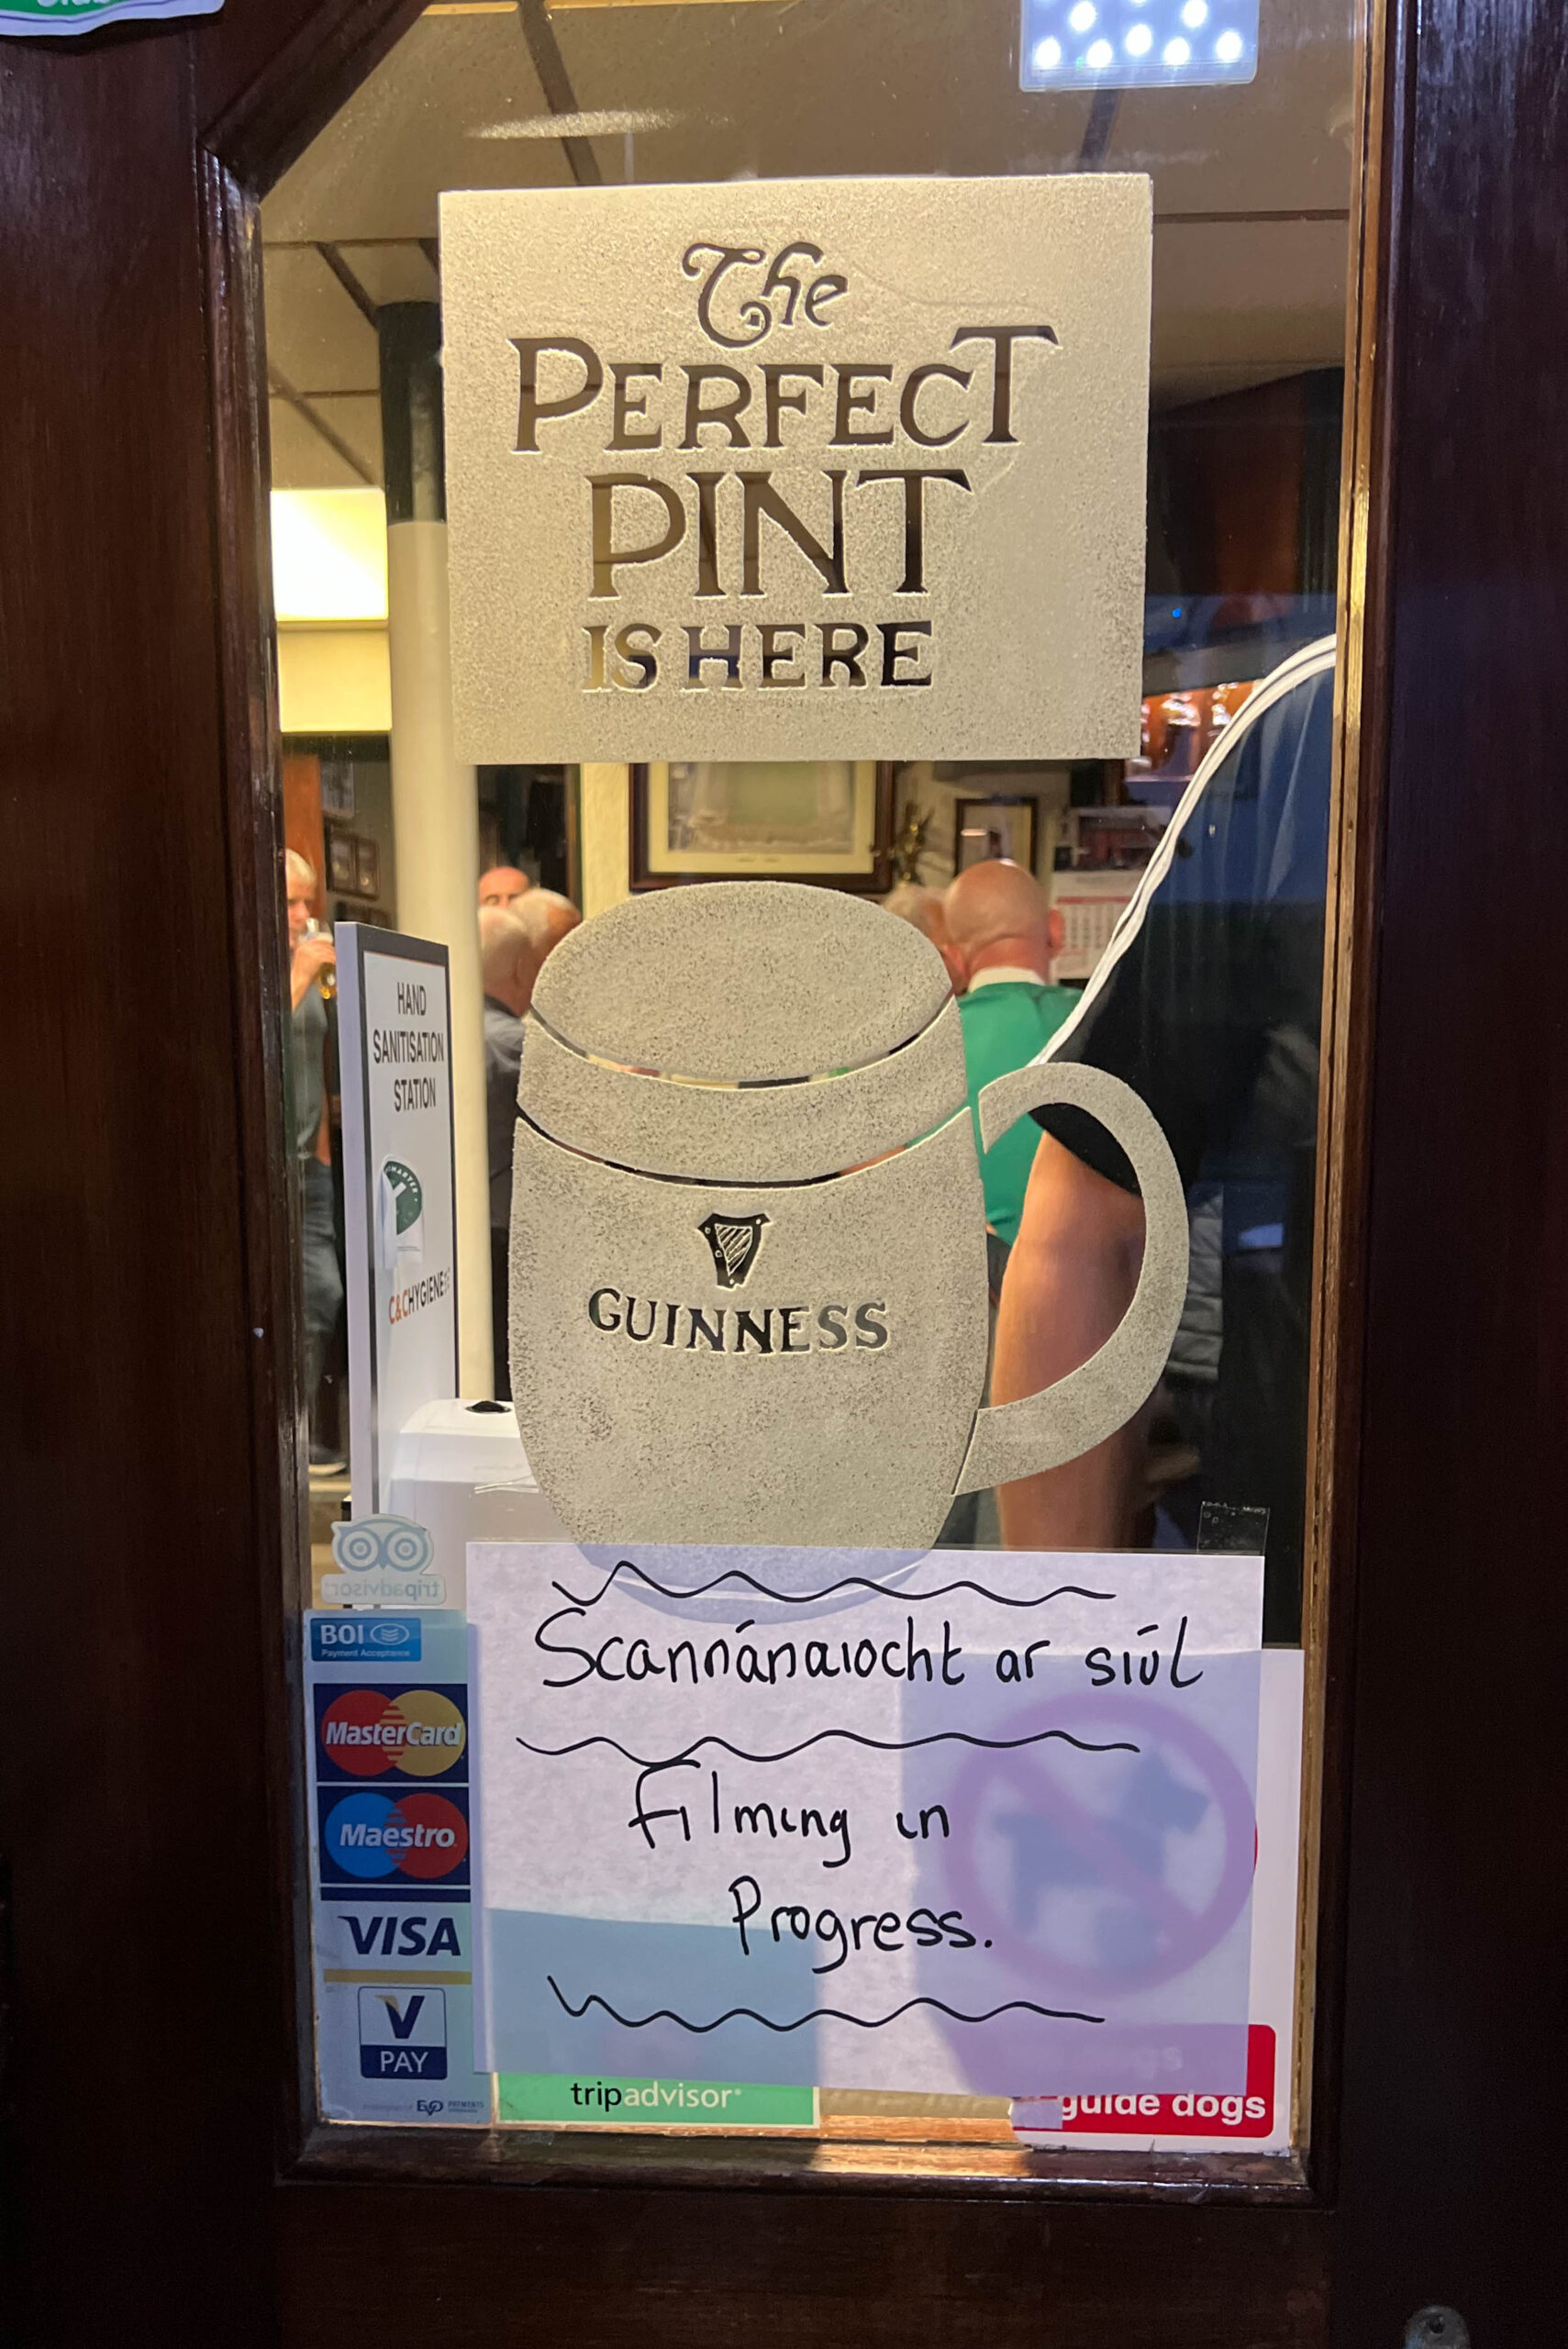 The
PERFECT
PINT
IS HERE
HAND
SANITISATION
STATION
C&CHYGIENE
GUINNESS
tripadvisor
BOI
Payment Acceptance
MasterCard
Maestro
VISA
V
PAY
EVO PAYMENTS
Scannánaíocht ar siúl
Filming in
Progress.
tripadvisor®
guide dogs